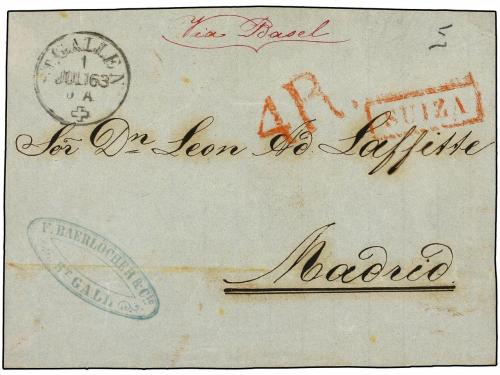 Via Basel
ST GALLEN
1
JULI 63
4R.
SUIZA
Sor Dn Leon Ad Laffitte
Madrid
F. BAERLOCHER & Cie
ST GALL